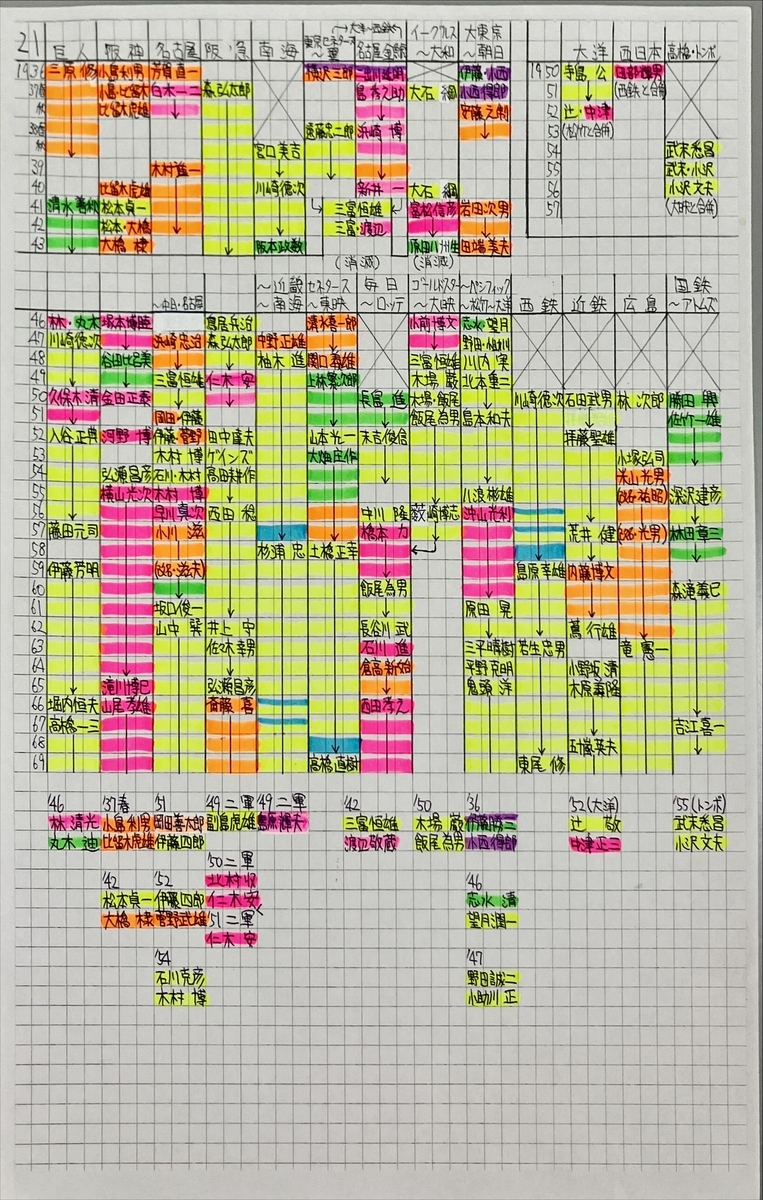 21 巨人 阪神 名古屋 阪急 南海 東京セネタース〜翼 名古屋金鯱 イーグルス〜大和 大東京〜朝日 大洋 西日本 高橋・トンボ
1936 三原修 小島利男 芳賀直一 横沢三郎 二出川延明 伊藤・小西 1950 寺島 公 日部輝男
37春 小島・比留木 白木一二 森弘太郎 島秀之助 大石 綱 小西得郎 51 (西鉄と合併)
秋 比留木虎雄 安藤之制 52 辻・中津
38春 遠藤忠二郎 浜崎 博 53 (松竹と合併)
秋 宮口美吉 54 武末悉昌
39 木村進一 55 武末・小沢
40 比留木虎雄 川崎徳次 新井 一 大石 綱 56 小沢文夫
41 清水善秋 松本貞一 三富恒雄 富松信彦 岩田次男 57 (大映と合併)
42 松本・大橋 三富・渡辺
43 大橋 棣 阪本政数 原田八州生 田端美夫
(消滅) (消滅)
〜中日・名古屋 〜近畿〜南海 セネタース〜東映 毎日〜ロッテ ゴールドスター〜大映 〜パシフィック〜松竹〜大洋 西鉄 近鉄 広島 国鉄〜アトムズ
46 林・丸木 塚本博睦 鳥居兵治 清水喜一郎 小前博文 志水・望月
47 川崎徳次 浜崎忠治 森弘太郎 中野正雄 野田・小助川
48 谷田比呂美 柚木 進 関口義雄 三富恒雄 川内 実
49 三富恒雄 仁木 安 上林繁次郎 木場 巌 北本重二
50 久保木清 金田正泰 長島 進 木場・飯尾 川崎徳次 石田武男 林 次郎 勝田 興
51 岡田・伊藤 飯尾為男 島本和夫 佐竹一雄
52 入谷正典 河野 博 伊藤・菅野 田中達夫 山本光一 末吉俊信 拝藤聖雄
53 木村 博 ゲインズ 大畑庄作 小塚弘司
54 弘瀬昌彦 石川・木村 高田耕作 米山光男
55 横山光次 木村 博 八浪彬雄 深沢建彦
56 早川真次 西田 稔 中川 隆 沖山光利
57 藤田元司 小川 滋 橋本 力 荒井 健 (改名・光男) 林田章三
58 杉浦 忠 土橋正幸
59 伊藤芳明 (改名・滋夫) 島原幸雄 内藤博文
60 飯尾為男 森滝義巳
61 坂口俊一 原田 晃
62 山中 巽 井上 守 長谷川 武 蔦 行雄
63 佐々木幸男 石川 進 三平晴樹 若生忠男 竜 憲一
64 倉高新始 平野克明 小野坂 清
65 滝川博已 弘瀬昌彦 鬼頭 洋 木原義隆
66 堀内恒夫 山尾孝雄 斎藤 喜 西田孝之
67 高橋一三 吉江喜一
68 五嵐英夫
69 高橋直樹 東尾 修
'46 '37春 '51 '49二軍 '49二軍 '42 '50 '36 '52(大洋) '55(トンボ)
林 清光 小島利男 岡田善太郎 副島虎雄 三富恒雄 木場 巌 伊藤勝三 辻 敬 武末悉昌
丸木 迪 比留木虎雄 伊藤四郎 渡辺敬蔵 飯尾為男 小西得郎 中津正三 小沢文夫
'50二軍
'42 '52 北村収 '46
松本貞一 伊藤四郎 仁木安 志水 清
大橋 棣 菅野武雄 '51二軍 望月潤一
仁木 安
'54 '47
石川克彦 野田誠二
木村 博 小助川 正